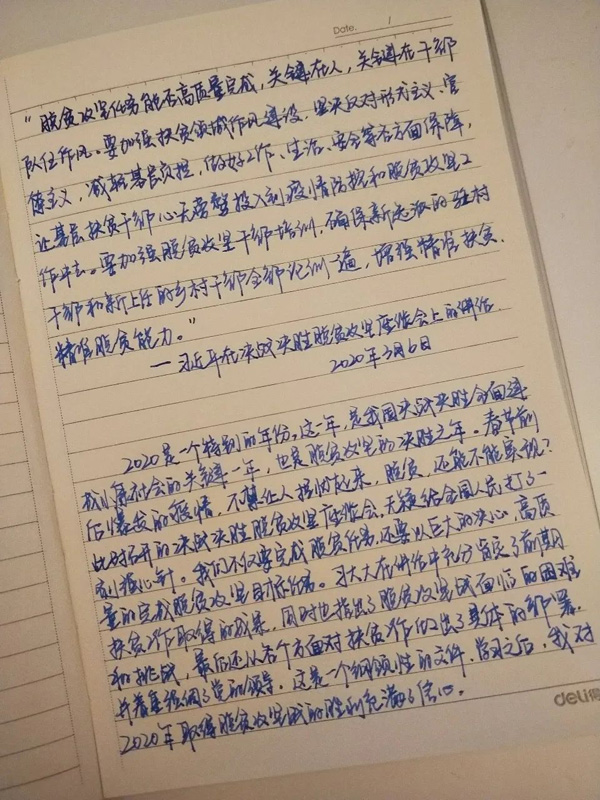 Date. /
“脱贫攻坚任务能否高质量完成，关键在人，关键在干部
队伍作风。要加强扶贫领域作风建设，坚决反对形式主义、官
僚主义，减轻基层负担，做好工作、生活、安全等各方面保障，
让基层扶贫干部心无旁骛投入到疫情防控和脱贫攻坚工
作中去。要加强脱贫攻坚干部培训，确保新选派的驻村
干部和新上任的乡村干部全部轮训一遍，增强精准扶贫、
精准脱贫能力。”
—习近平在决战决胜脱贫攻坚座谈会上的讲话
2020年3月6日
2020是一个特别的年份，这一年，是我国决战决胜全面建
成小康社会的关键一年，也是脱贫攻坚的决胜之年。春节前
后爆发的疫情，不禁让人揣测起来，脱贫，还能不能实现？
此时召开的决战决胜脱贫攻坚座谈会，无疑给全国人民打了一
剂强心针。我们不仅要完成脱贫任务，还要以巨大的决心，高质
量的完成脱贫攻坚目标任务。习大大在讲话中充分肯定了前期
扶贫工作取得的成果，同时也指出了脱贫攻坚战面临的困难
和挑战，最后还从各个方面对扶贫工作做出了具体的部署，
并着重强调了党的领导。这是一个纲领性的文件，学习之后，我对
2020年取得脱贫攻坚战的胜利充满了信心。
deli得